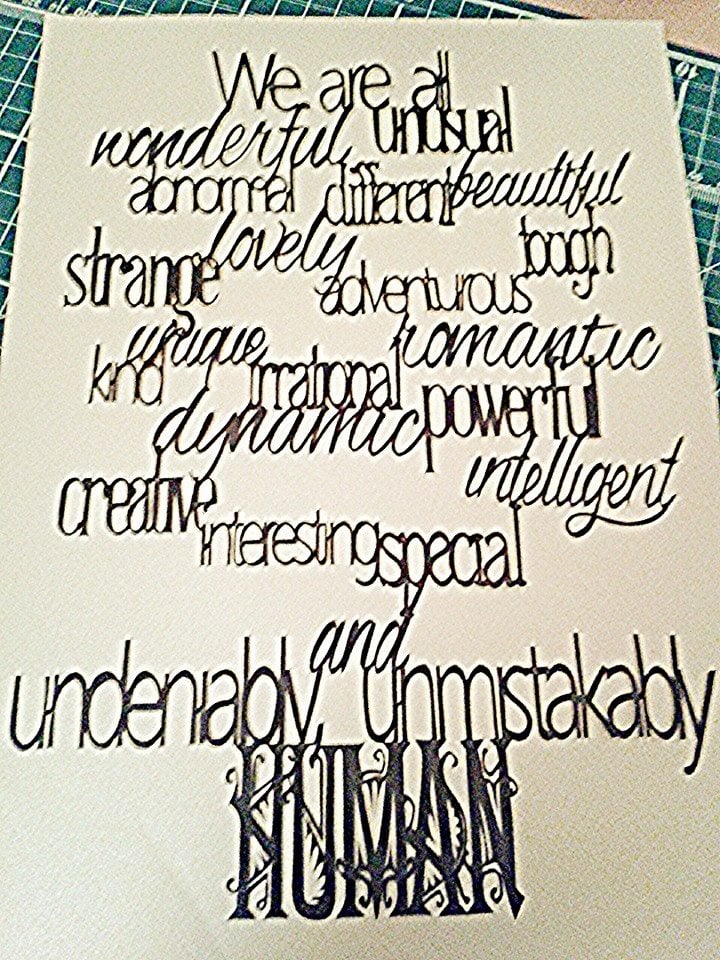 We are all
wonderful, unusual
abnormal different beautiful
lovely tough
strange adventurous
unique, romantic
kind irrational powerful
dynamic
intelligent
creative
interesting special
and
undeniably, unmistakably
HUMAN